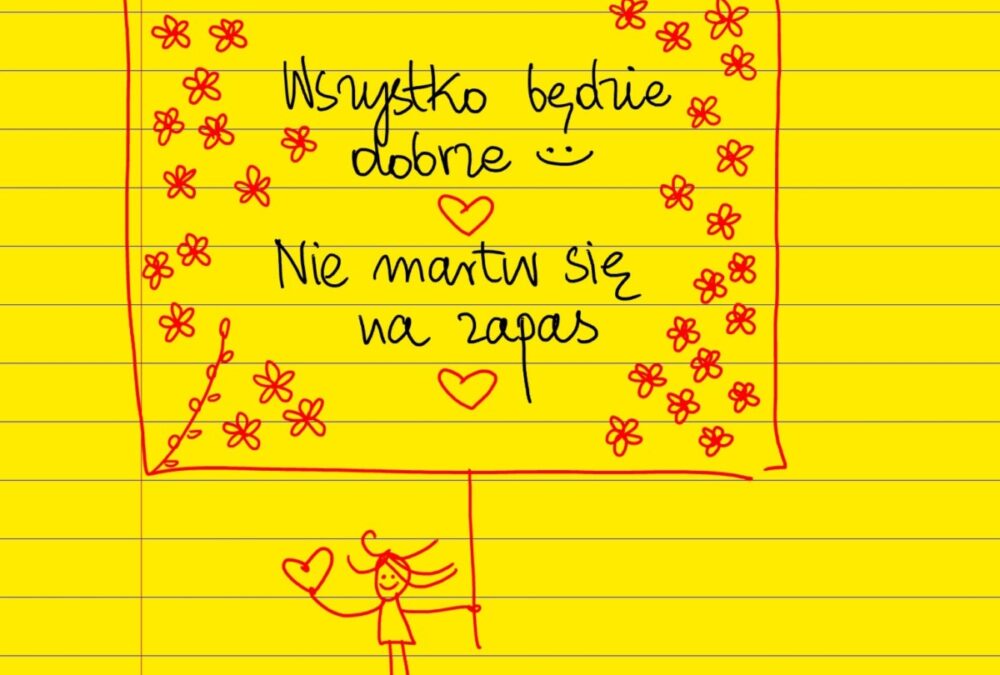 Wszystko będzie
dobrze :)
Nie martw się
na zapas